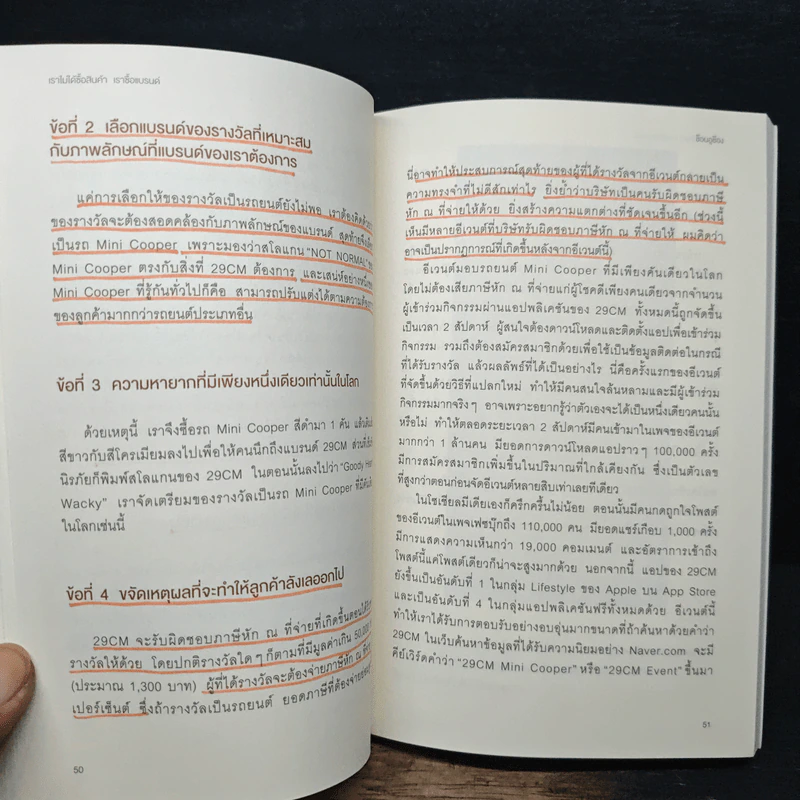 เราไม่ได้ซื้อสินค้า เราซื้อแบรนด์
ข้อที่ 2 เลือกแบรนด์ของรางวัลที่เหมาะสม
กับภาพลักษณ์ที่แบรนด์ของเราต้องการ
แค่การเลือกให้ของรางวัลเป็นรถยนต์ยังไม่พอ เราต้องคิดด้วย
ของรางวัลจะต้องสอดคล้องกับภาพลักษณ์ของแบรนด์ สุดท้ายจึง
เป็นรถ Mini Cooper เพราะมองว่าสโลแกน "NOT NORMAL"
Mini Cooper ตรงกับสิ่งที่ 29CM ต้องการ และเสน่ห์อย่างหนึ่ง
Mini Cooper ที่รู้กันทั่วไปก็คือ สามารถปรับแต่งได้ตามความ
ของลูกค้ามากกว่ารถยนต์ประเภทอื่น
ข้อที่ 3 ความหายากที่มีเพียงหนึ่งเดียวเท่านั้นในโลก
ด้วยเหตุนี้ เราจึงซื้อรถ Mini Cooper สีดำมา 1 คัน แล้ว
สีขาวกับสีโครเมียมลงไปเพื่อให้คนนึกถึงแบรนด์ 29CM ส่วน
นิรภัยก็พิมพ์สโลแกนของ 29CM ในตอนนั้นลงไปว่า "Goody
Wacky" เราจัดเตรียมของรางวัลเป็นรถ Mini Cooper ที่มี
ในโลกเช่นนี้
ข้อที่ 4 ขจัดเหตุผลที่จะทำให้ลูกค้าลังเลออกไป
29CM จะรับผิดชอบภาษีหัก ณ ที่จ่ายที่เกิดขึ้นตอนได้
รางวัลให้ด้วย โดยปกติรางวัลใดๆ ก็ตามที่มีมูลค่าเกิน 50,000
(ประมาณ 1,300 บาท) ผู้ที่ได้รางวัลจะต้องจ่ายภาษีหัก ณ ที่จ่าย
เปอร์เซ็นต์ ซึ่งถ้ารางวัลเป็นรถยนต์ ยอดภาษีที่ต้องจ่าย
50
ช็อนอูซ็อง
นี่อาจทำให้ประสบการณ์สุดท้ายของผู้ที่ได้รางวัลจากอีเวนต์กลายเป็น
ความทรงจำที่ไม่ดีสักเท่าไร ยิ่งย้ำว่าบริษัทเป็นคนรับผิดชอบภาษี
หัก ณ ที่จ่ายให้ด้วย ยิ่งสร้างความแตกต่างที่ชัดเจนขึ้นอีก (ช่วงนี้
เห็นมีหลายอีเวนต์ที่บริษัทรับผิดชอบภาษีหัก ณ ที่จ่ายให้ ผมคิดว่า
อาจเป็นปรากฏการณ์ที่เกิดขึ้นหลังจากอีเวนต์นี้)
อีเวนต์มอบรถยนต์ Mini Cooper ที่มีเพียงคันเดียวในโลก
โดยไม่ต้องเสียภาษีหัก ณ ที่จ่ายแก่ผู้โชคดีเพียงคนเดียวจากจำนวน
ผู้เข้าร่วมกิจกรรมผ่านแอปพลิเคชันของ 29CM ทั้งหมดนี้ถูกจัดขึ้น
เป็นเวลา 2 สัปดาห์ ผู้สนใจต้องดาวน์โหลดและติดตั้งแอปเพื่อเข้าร่วม
กิจกรรม รวมถึงต้องสมัครสมาชิกด้วยเพื่อใช้เป็นข้อมูลติดต่อในกรณี
ที่ได้รับรางวัล แล้วผลลัพธ์ที่ได้เป็นอย่างไร นี่คือครั้งแรกของอีเวนต์
ที่จัดขึ้นด้วยวิธีที่แปลกใหม่ ทำให้มีคนสนใจล้นหลามและมีผู้เข้าร่วม
กิจกรรมมากจริงๆ อาจเพราะอยากรู้ว่าตัวเองจะได้เป็นหนึ่งเดียวคนนั้น
หรือไม่ ทำให้ตลอดระยะเวลา 2 สัปดาห์มีคนเข้ามาในเพจของอีเวนต์
มากกว่า 1 ล้านคน มียอดการดาวน์โหลดแอปราวๆ 100,000 ครั้ง
มีการสมัครสมาชิกเพิ่มขึ้นในปริมาณที่ใกล้เคียงกัน ซึ่งเป็นตัวเลข
ที่สูงกว่าตอนก่อนจัดอีเวนต์หลายสิบเท่าเลยทีเดียว
ในโซเชียลมีเดียเองก็ครึกครื้นไม่น้อย ตอนนั้นมีคนกดถูกใจโพสต์
ของอีเวนต์ในเพจเฟซบุ๊กถึง 110,000 คน มียอดแชร์เกือบ 1,000 ครั้ง
มีการแสดงความเห็นกว่า 19,000 คอมเมนต์ และอัตราการเข้าถึง
โพสต์นี้แค่โพสต์เดียวก็น่าจะสูงมากด้วย นอกจากนี้ แอปของ 29CM
ยังขึ้นเป็นอันดับที่ 1 ในกลุ่ม Lifestyle ของ Apple บน App Store
และเป็นอันดับที่ 4 ในกลุ่มแอปพลิเคชันฟรีทั้งหมดด้วย อีเวนต์นี้
ทำให้เราได้รับการตอบรับอย่างอบอุ่นมากขนาดที่ถ้าค้นหาด้วยคำว่า
29CM ในเว็บค้นหาข้อมูลที่ได้รับความนิยมอย่าง Naver.com จะมี
คีย์เวิร์ดคำว่า "29CM Mini Cooper" หรือ "29CM Event" ขึ้นมา
51